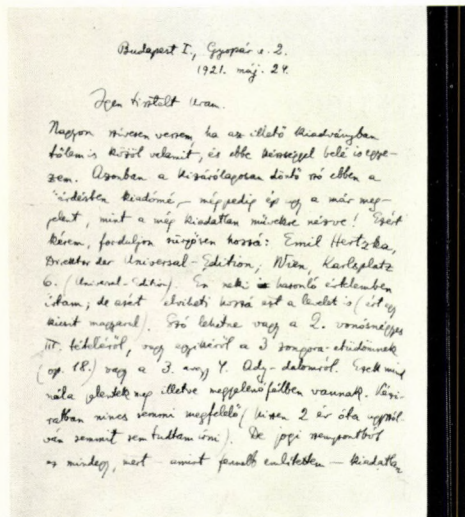 Budapest I., Gyopár u. 2.
1921. máj. 24.
Igen tisztelt Uram.
Nagyon szivesen veszem ha az illető kiadványban
tőlem is közöl valamit, és ebbe készséggel belé is egye-
zem. Azonban a kizárólagosan döntő szó ebben a
kiadómé, mégpedig ép ugy a már meg-
jelent, mint a még kiadatlan művekre nézve! Ezért
kérem, forduljon sürgősen hozzá: Emil Hertzka,
Direktor der Universal-Edition, Wien, Karlsplatz
6. (Universal-Edition). Én neki hasonló értelemben
irtam; de azért elviheti hozzá ezt a levelet is (
magával). Szó lehetne vagy a 2. vonósnégyes
III. tételéről, vagy egyikéről a 3 zongora-etüdömnek
(op. 18.) vagy a 3. vagy 4. Ady-dalomról. Ezek mind
nála jelentek meg illetve megjelenőfélben vannak. Kézi-
ratban nincs semmi megfelelő (hiszen 2 év óta ugyszól-
ván semmit sem tudtam irni). De jogi szempontból
ez mindegy, mert – amint fennebb emlitettem – kiadatlan